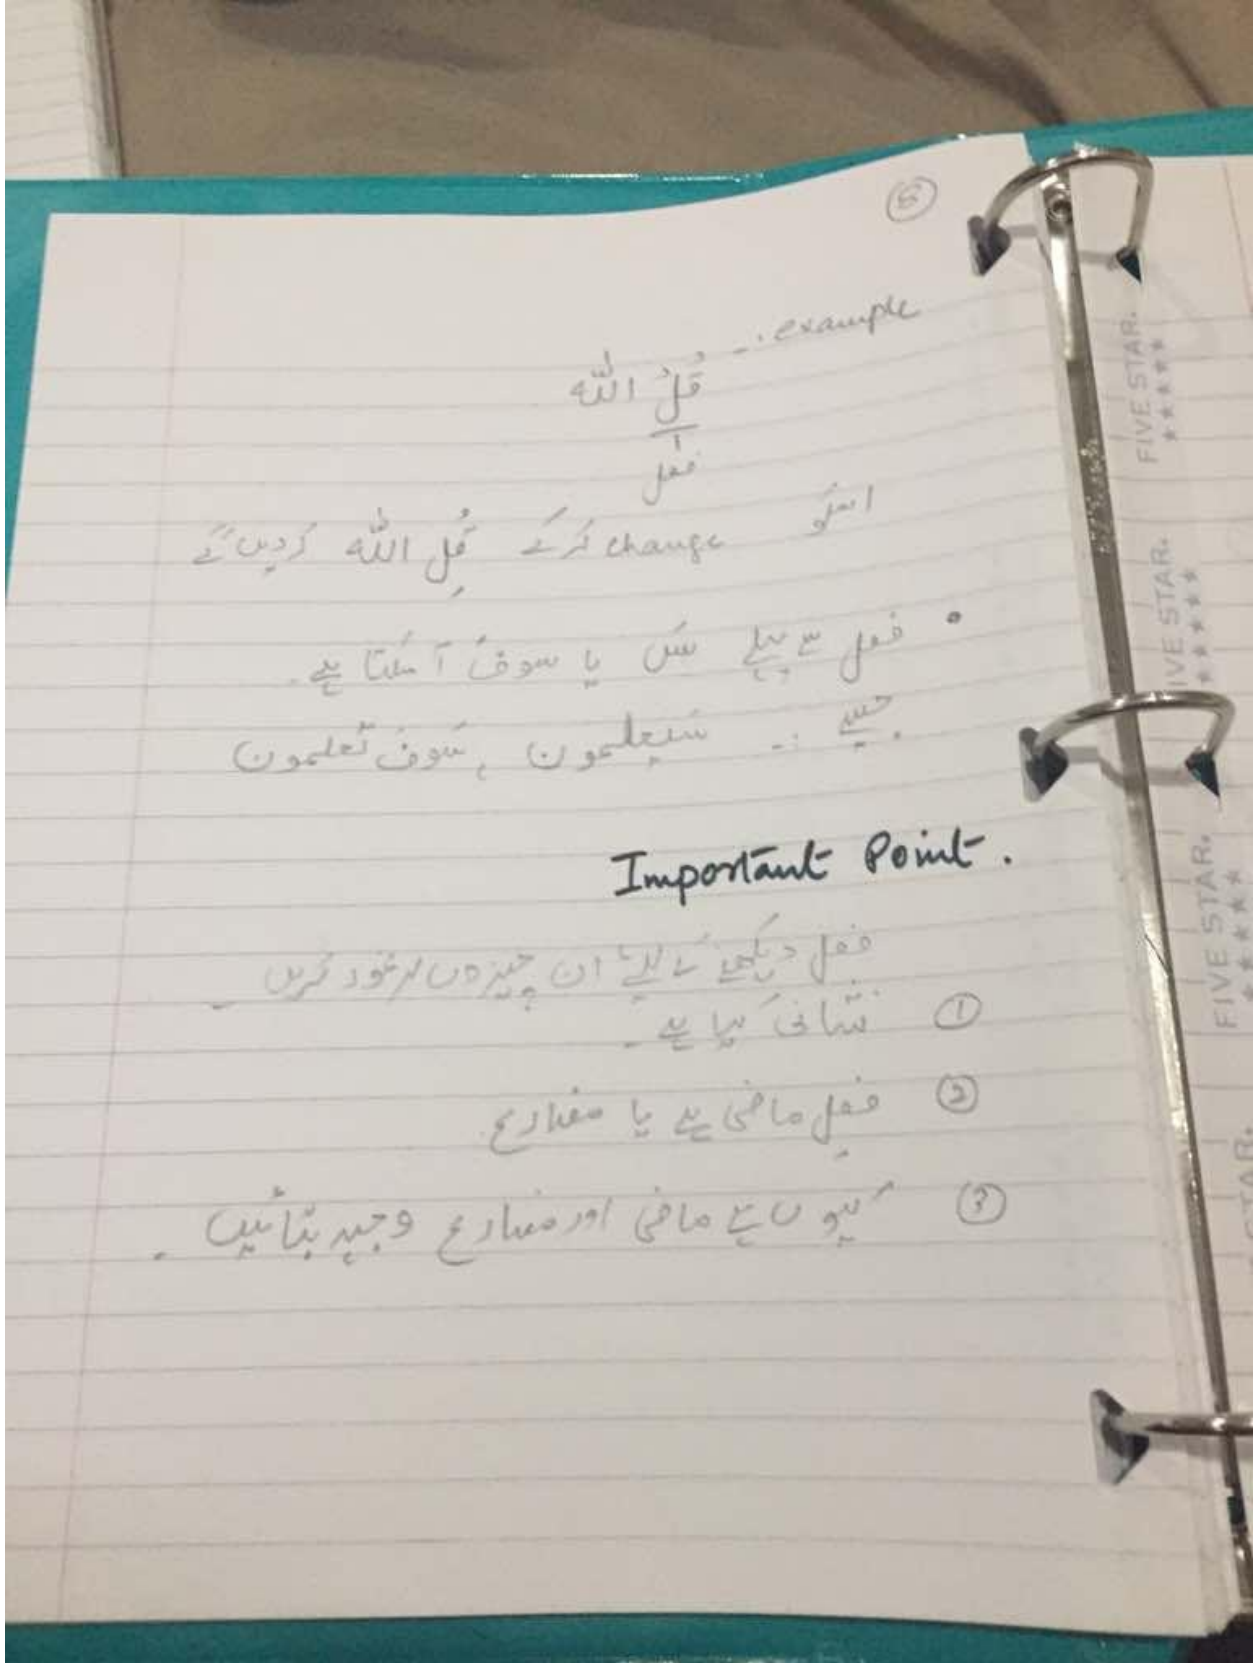 8
example :-
قُلْ اللّٰه
فعل
اسکو change کرکے قُلِ اللّٰه کردیں گے
• فعل سے پہلے سَ یا سوفَ آ سکتا ہے۔
جیسے :- سَیعلمون , سَوفَ تَعلمون
Important Point.
فعل دیکھنے کے لیے ان چیزوں پر غور کریں۔
① نشانی کیا ہے۔
② فعل ماضی ہے یا مضارع
③ کیوں ہے ماضی اور مضارع وجہ بتائیں۔
FIVE STAR.
FIVE STAR.
FIVE STAR.